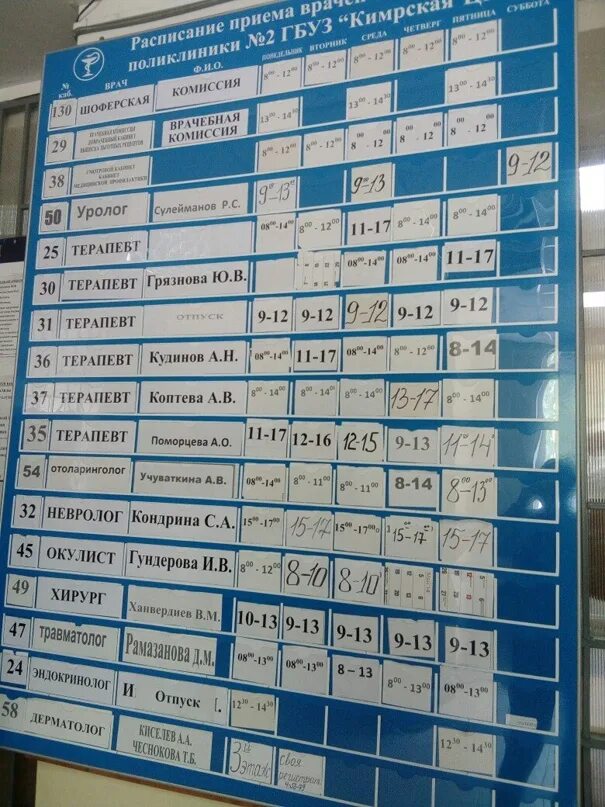 Расписание приема врачей
поликлиники №2 ГБУЗ "Кимрская
№ каб. ВРАЧ Ф.И.О. ПОНЕДЕЛЬНИК ВТОРНИК СРЕДА ЧЕТВЕРГ ПЯТНИЦА СУББОТА
130 ШОФЕРСКАЯ КОМИССИЯ 8⁰⁰ - 12⁰⁰ 8⁰⁰ - 12⁰⁰ 8⁰⁰ - 12⁰⁰ 8⁰⁰ - 12⁰⁰ 8⁰⁰ - 12⁰⁰
13⁰⁰ - 14³⁰ 13⁰⁰ - 14³⁰ 13⁰⁰ - 14³⁰
29 ВРАЧЕБНАЯ КОМИССИЯ 8⁰⁰ - 12⁰⁰ 8⁰⁰ - 12⁰⁰ 8 - 12 8 - 12 8 - 12
38 СМОТРОВОЙ КАБИНЕТ КАБИНЕТ МЕДИЦИНСКОЙ ПРОФИЛАКТИКИ 9-12
50 Уролог Сулейманов Р.С. 9⁰⁰-13⁰⁰ 9⁰⁰-13
25 ТЕРАПЕВТ 08⁰⁰-14⁰⁰ 8⁰⁰ - 12⁰⁰ 11-17 8⁰⁰ - 14⁰⁰ 8⁰⁰ - 14⁰⁰
30 ТЕРАПЕВТ Грязнова Ю.В. 08⁰⁰-14⁰⁰ 08⁰⁰-14⁰⁰ 11-17
31 ТЕРАПЕВТ ОТПУСК 9-12 9-12 9-12 9-12 9-12
36 ТЕРАПЕВТ Кудинов А.Н. 08⁰⁰-14⁰⁰ 11-17 08⁰⁰-14⁰⁰ 8⁰⁰ - 12⁰⁰ 8-14
37 ТЕРАПЕВТ Коптева А.В. 8⁰⁰ - 14⁰⁰ 8⁰⁰ - 14⁰⁰ 8⁰⁰ - 14⁰⁰ 13-17 8⁰⁰ - 14⁰⁰
35 ТЕРАПЕВТ Поморцева А.О. 11-17 12-16 12-15 9-13 11-14
54 отоларинголог Учуваткина А.В. 08⁰⁰-14⁰⁰ 8⁰⁰ - 11⁰⁰ 8⁰⁰ - 11⁰⁰ 8-14 8⁰⁰-13⁰⁰
32 НЕВРОЛОГ Кондрина С.А. 15⁰⁰-17⁰⁰ 15-17 15⁰⁰-17⁰⁰ 15-17 15-17
45 ОКУЛИСТ Гундерова И.В. 8⁰⁰ - 12⁰⁰ 8-10 8-10
49 ХИРУРГ Ханвердиев В.М. 10-13 9-13 9-13 9-13 9-13
47 травматолог Рамазанова Д.М. 08⁰⁰-13⁰⁰ 08⁰⁰-13⁰⁰ 8 – 13 8⁰⁰ - 13⁰⁰ 08⁰⁰-13⁰⁰
24 ЭНДОКРИНОЛОГ И Отпуск 12³⁰ - 14³⁰
58 ДЕРМАТОЛОГ КИСЕЛЕВ А.А. ЧЕСНОКОВА Т.Б. 3й этаж своя регистрат. 12³⁰ - 14³⁰